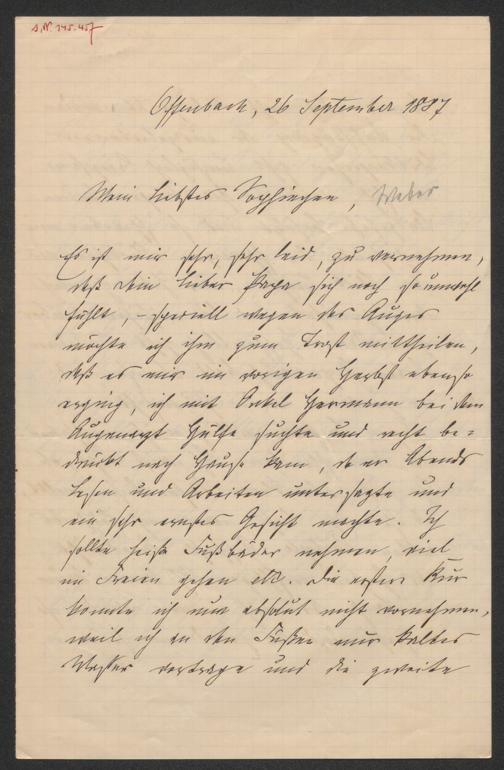 S.N. 145.457
Offenbach, 26 September 1887
Mein liebstes Sophiechen, Weber
Es ist mir sehr, sehr leid, zu vernehmen,
daß Dein lieber Papa sich noch so unwohl
fühlt, – speciell wegen des Auges
möchte ich ihm zum Trost mittheilen,
daß es mir im vorigen Herbst ebenso
erging, ich mit Onkel Hermann bei dem
Augenarzt Hülfe suchte und recht be-
drückt nach Hause kam, da er Abends
Lesen und Arbeiten untersagte und
ein sehr ernstes Gesicht machte. Ich
sollte heiße Fußbäder nehmen, viel
im Freien gehen etc. Die erstere Kur
konnte ich nun absolut nicht vornehmen,
weil ich an den Füßen nur kaltes
Wasser vertrage und die zweite